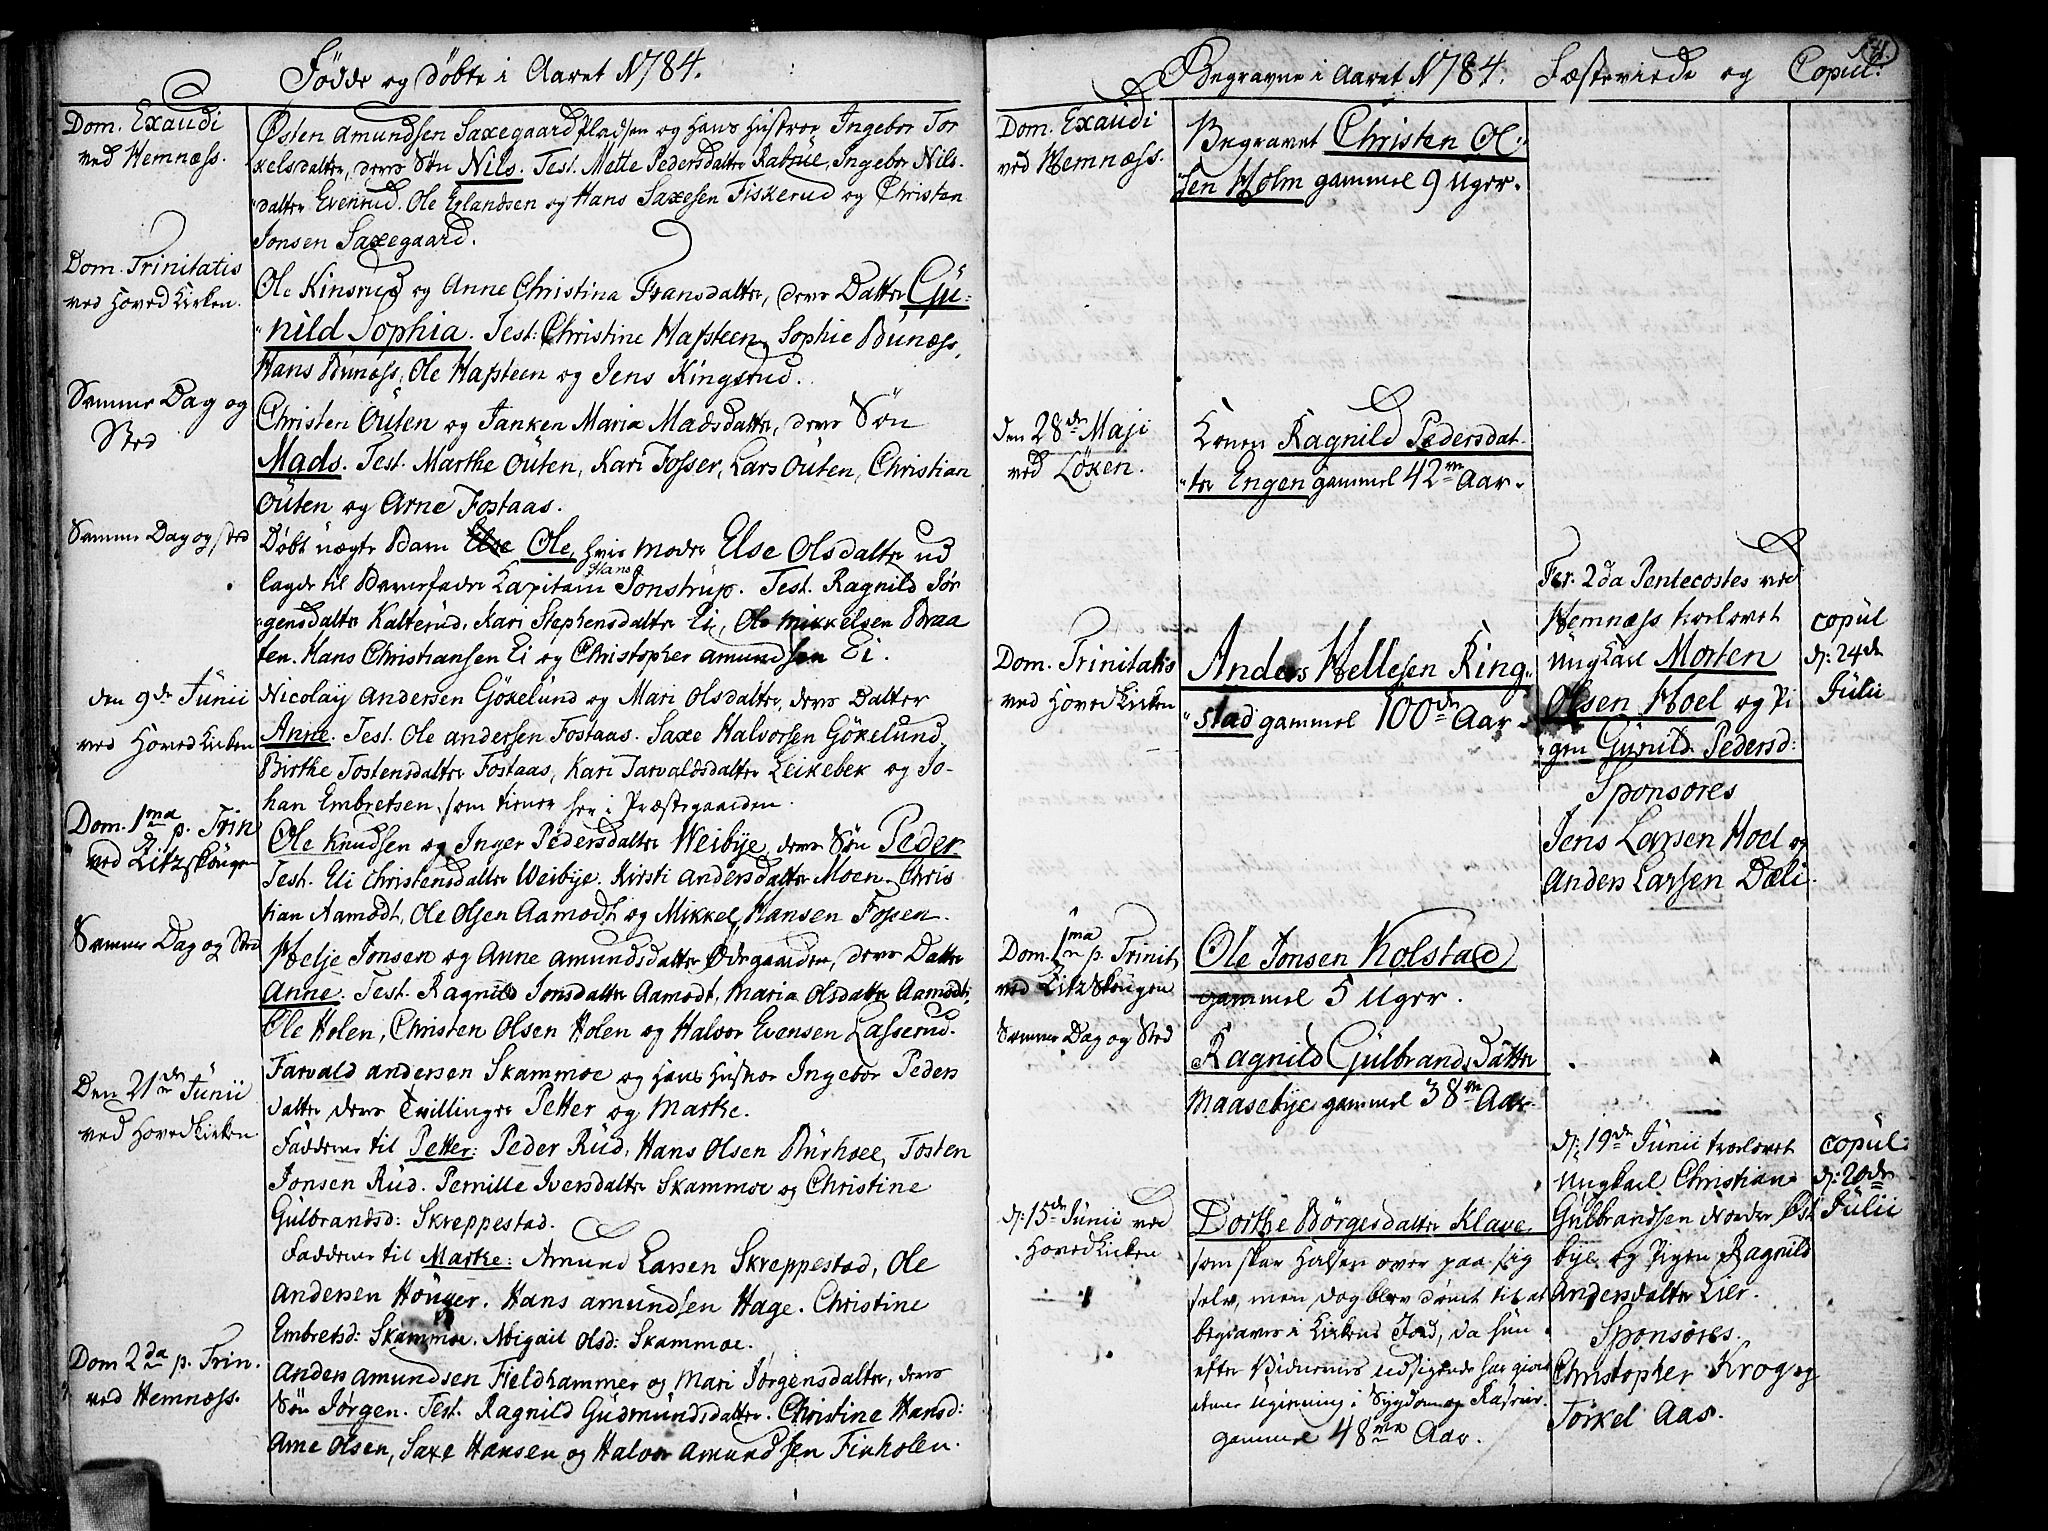 Fødde og døbte i Aaret 1784.
Dom. Exaudi
ved Hemnæss.
Østen Amundsen Saxegaardpladsen og Hans Hustroe Ingebor Tor
kelsdatter, deres Søn Nils. Test. Mette Pedersdatter Ingebor Nils-
datter Evenrud. Ole Erlandsen og Hans Saxesen Fiskerud og Christen
Jonsen Saxegaard.
Dom. Trinitatis
ved Hoved Kirken.
Ole Kinsrud og Anne Christina Fransdatter, deres Datter Gu-
nild Sophia. Test: Christine Hafsteen, Sophie Bunæss,
Hans Bunæss, Ole Hafsteen og Jens Kingsrud.
Samme Dag og
Sted
Christen Outen og Janken Maria Madsdatter, deres Søn
Mads. Test. Marthe Outen, Kari Fosser, Lars Outen, Christian
Outen og Arne Fostaas.
Samme Dag og sted
Døbt uægte Barn Else Ole, hvis Moder Else Olsdatter ud
lagde til Barnefader Capitain Hans Jonstrup. Test. Ragnild Jør
gensdatter Kalterud, Kari Stephensdatter Ei, Ole Mikkelsen Braa
ten. Hans Christiansen Ei og Christopher Amundsen Ei.
den 9de Junii
ved Hoved Kirken
Nicolay Andersen Gökelund og Mari Olsdatter, deres Datter
Anne. Test. Ole Andersen Fostaas. Saxe Halvorsen Gökelund,
Birthe Tostensdatter Fostaas, Kari Tarvaldsdatter Leikebek og Jo-
han Embretsen, som tiener her i Præstegaarden.
Dom. 1ma p. Trin
ved Sitzskougen
Ole Knudsen og Inger Pedersdatter Weibye, deres Søn Peder
Test. Eli Christensdatter Weibye. Kirsti Andersdatter Moen. Chris
tian Aamodt, Ole Olsen Aamodt og Mikkel Hansen Fossen.
Samme Dag og Sted
Helje Jonsen og Anne Amundsdatter Ödegaarden, deres Datter
Anne. Test. Ragnild Jonsdatter Aamodt, Maria Olsdatter Aamodt,
Ole Holen, Christen Olsen Holen og Halvor Evensen Lasserud.
Den 21de Junii
ved Hoved Kirken
Tarvald Andersen Skammoe og Hans Hustroe Ingebor Peders
datter deres Tvillinger Petter og Marte.
Faddere til Petter: Peder Rud, Hans Olsen Tosten
Jonsen Rud. Pernille Iversdatter Skammoe og Christine
Gulbrandsd: Skreppestad.
Faddere til Marte: Amund Larsen Skreppestad, Ole
Andersen Höuger. Hans Amundsen Hage. Christine
Embretsd: Skammoe. Abigail Olsd: Skammoe.
Dom 2da p. Trin.
ved Hemnæss.
Anders Amundsen Fieldhammer og Mari Jørgensdatter, deres
Søn Jørgen. Test. Ragnild Gudmundsdatter. Christine Hansd:
Arne Olsen, Saxe Hansen og Halvor Amundsen Finholen.
Begravne i Aaret 1784. Fæsteviede og Copul:
Dom. Exaudi
ved Hemnæss.
Begravet Christen Ol-
sen Holm gammel 9 Uger.
den 28de Maji
ved Löken.
Konen Ragnild Pedersdat-
ter Engen gammel 42 Aar.
Dom. Trinitatis
ved Hoved Kirken
Anders Hellesen Ring-
stad gammel 100de Aar
Dom. 1ma p. Trinit.
ved Sitzskougen
Ole Jonsen Kolstad
gammel 5 Uger.
Samme Dag og Sted
Ragnild Gulbrandsdatter
Maasebye gammel 38 Aar
d: 15de Junii ved
Hoved Kirken
Dorthe Börgesdatter Klave
som skar Halsen over paa sig
selv, men dog blev dömt til at
begraves i Kirkens Jord, da hun
efter Vidnernes udsigende har giort
denne Gierning i Sygdom og Raserie.
gammel 48 Aar.
Fer. 2da Pentecostes ved
Hemnæss trolovet
Ung Karl Morten
Olsen Hoel og Pi
gen Gunild Pedersd:
Sponsores
Jens Larsen Hoel og
Anders Larsen Dæli.
copul
d: 24de
Julii
d: 19de Junii trolovet
Ungkarl Christian
Gulbrandsen Nordre Øst
bye og Pigen Ragnild
Andersdatter Lier.
Sponsores.
Christopher Krog og
Torkel Aas.
copul:
d: 20de
Julii